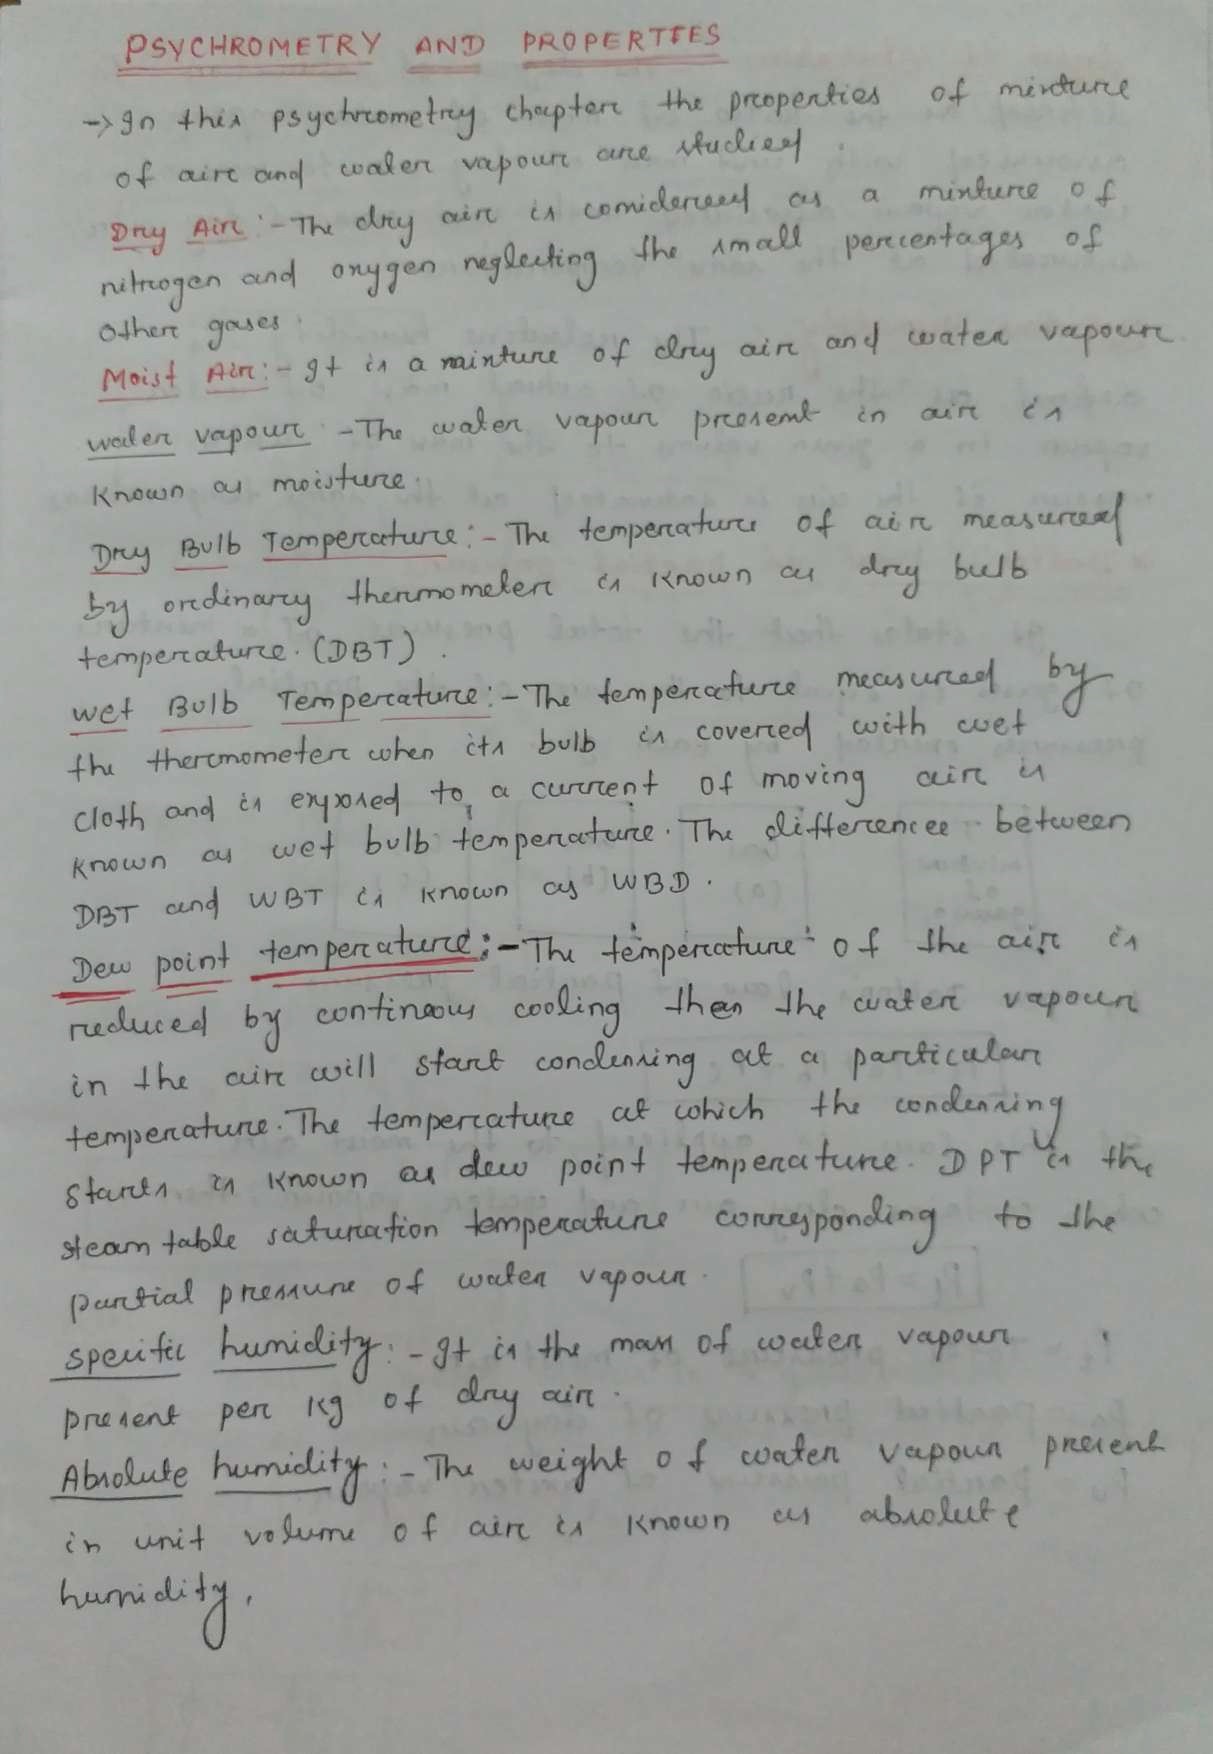 PSYCHROMETRY AND PROPERTIES
→ In this psychrometry chapter the properties of mixture
of air and water vapour are studied.
Dry Air :- The dry air is considered as a mixture of
nitrogen and oxygen neglecting the small percentages of
other gases.
Moist Air :- It is a mixture of dry air and water vapour
water vapour - The water vapour present in air is
known as moisture.
Dry Bulb Temperature :- The temperature of air measured
by ordinary thermometer is known as dry bulb
temperature. (DBT).
Wet Bulb Temperature :- The temperature measured by
the thermometer when its bulb is covered with wet
cloth and is exposed to a current of moving air is
known as wet bulb temperature. The differencee between
DBT and WBT is known as WBD.
Dew point temperature :- The temperature of the air is
reduced by continous cooling then the water vapour
in the air will start condensing at a particular
temperature. The temperature at which the condensing
starts is known as dew point temperature. DPT is the
steam table saturation temperature corresponding to the
partial pressure of water vapour.
specific humidity :- It is the mass of water vapour
present per kg of dry air.
Absolute humidity :- The weight of water vapour present
in unit volume of air is known as absolute
humidity.